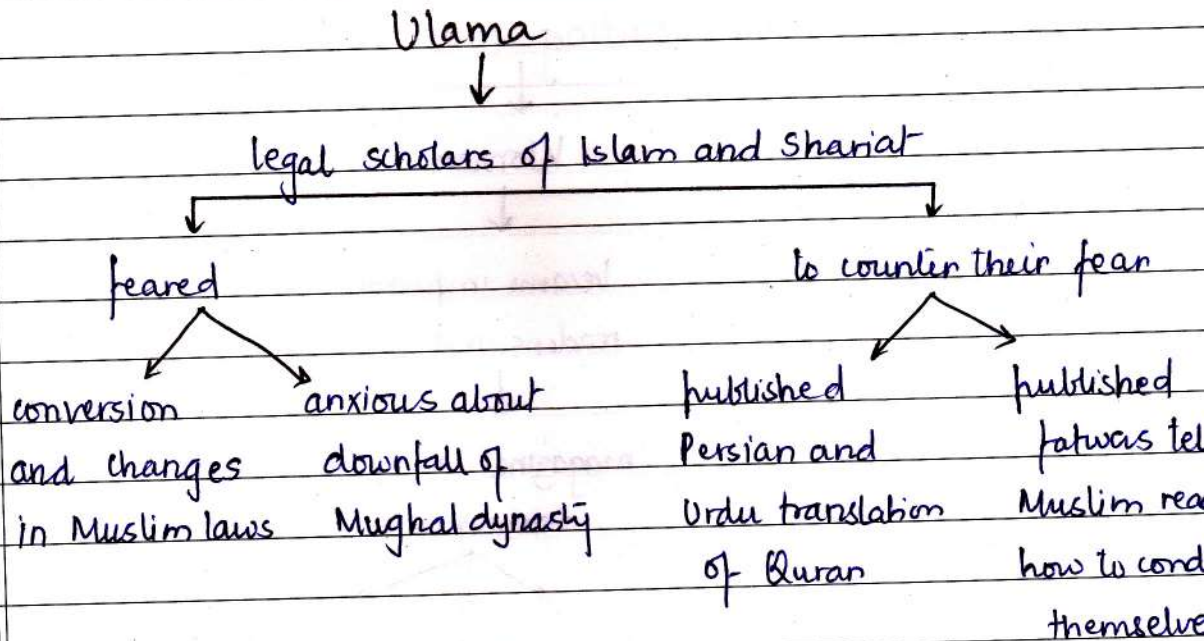 Ulama
legal scholars of Islam and Shariat
feared
to counter their fear
conversion
and changes
in Muslim laws
anxious about
downfall of
Mughal dynasty
published
Persian and
Urdu translation
of Quran
published
fatwas tel
Muslim rea
how to cond
themselve